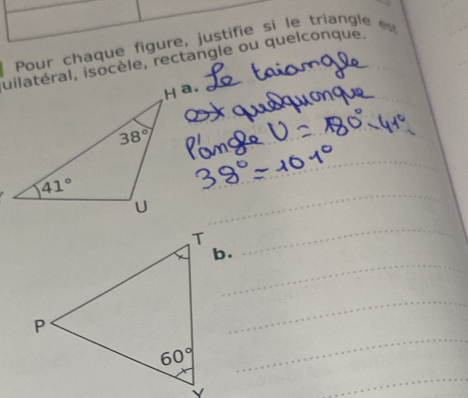 Pour chaque figure, justifie si le triangle est
uilatéral, isocèle, rectangle ou quelconque.
H a. Le taiangle
est quelquonque
38° l'angle U = 180°-41°-
41° 38° = 101°
U
T
b.
P
60°
Y